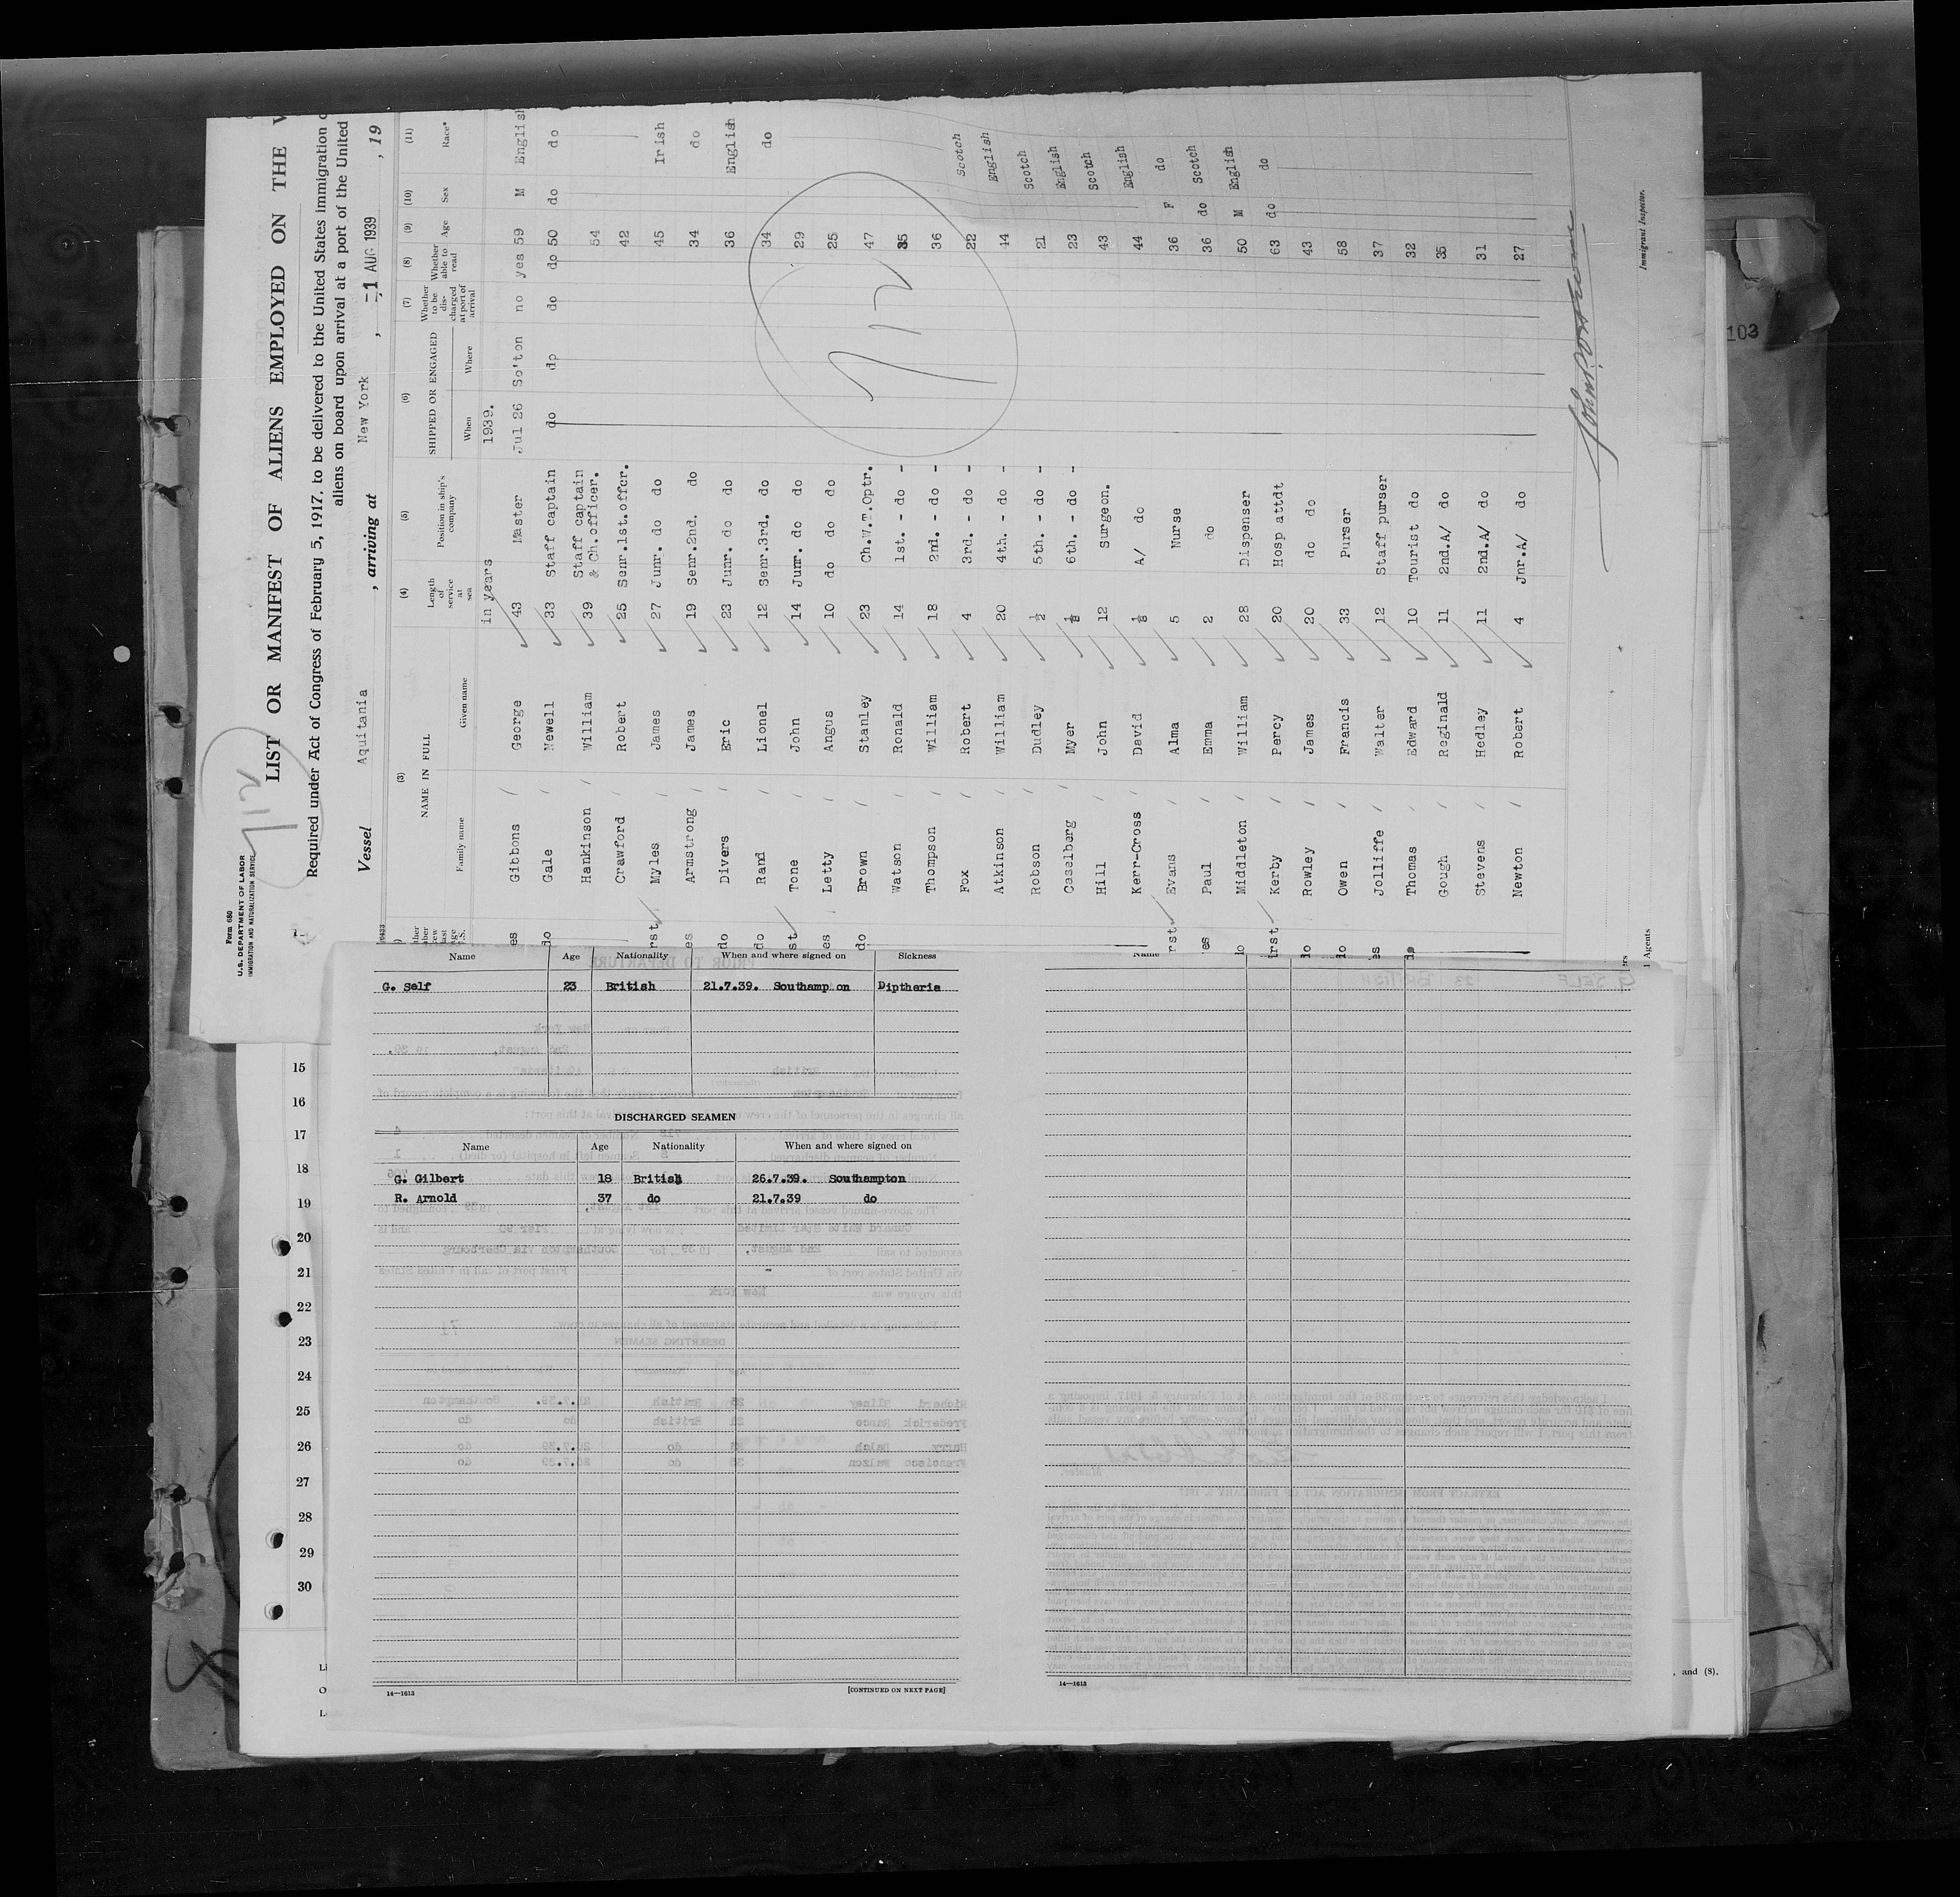 Form 680
U.S. DEPARTMENT OF LABOR
IMMIGRATION AND NATURALIZATION SERVICE
712
LIST OR MANIFEST OF ALIENS EMPLOYED ON THE
Required under Act of Congress of February 5, 1917, to be delivered to the United States immigration
aliens on board upon arrival at a port of the United
Vessel Aquitania , arriving at New York , -1 AUG 1939 , 19
(3) (4) (5) (6) (7) (8) (9) (10) (11)
NAME IN FULL Length of service at sea Position in ship's company SHIPPED OR ENGAGED Whether to be discharged at port of arrival Whether able to read Age Sex Race*
Family name Given name When Where
in years 1939.
Gibbons George 43 Master Jul 26 So'ton no yes 59 M English
Gale Newell 33 Staff captain do do do do 50 do do
Hankinson William 39 Staff captain & Ch.officer. 54
Crawford Robert 25 Senr.1st.offcr. 42
Myles James 27 Junr. do do 45 Irish
Armstrong James 19 Senr.2nd. do 34 do
Divers Eric 23 Junr. do do 36 English
Rand Lionel 12 Senr.3rd. do 34 do
Tone John 14 Junr. do do 29
Letty Angus 10 do do do 25
Brown Stanley 23 Ch.W.T.Optr. 47
Watson Ronald 14 1st. - do - 35
Thompson William 18 2nd. - do - 36
Fox Robert 4 3rd. - do - 22 Scotch
Atkinson William 20 4th. - do - 44 English
Robson Dudley ½ 5th. - do - 21 Scotch
Caselberg Myer 6th. - do - 23 English
Hill John 12 Surgeon. 43 Scotch
Kerr-Cross David A/ do 44 English
Evans Alma 5 Nurse 36 F do
Paul Emma 2 do 36 do Scotch
Middleton William 28 Dispenser 50 M English
Kerby Percy 20 Hosp attdt 63 do do
Rowley James 20 do do 43
Owen Francis 33 Purser 58
Jolliffe Walter 12 Staff purser 37
Thomas Edward 10 Tourist do 32
Gough Reginald 11 2nd.A/ do 35
Stevens Hedley 11 2nd.A/ do 31
Newton Robert 4 Jnr.A/ do 27
712
Immigrant Inspector.
Agents
103
Name Age Nationality When and where signed on Sickness
G. Self 23 British 21.7.39. Southampton Diptheria
DISCHARGED SEAMEN
Name Age Nationality When and where signed on
G. Gilbert 18 British 26.7.39. Southampton
R. Arnold 37 do 21.7.39 do
14—1613 [CONTINUED ON NEXT PAGE]
Name
14—1613
15
16
17
18
19
20
21
22
23
24
25
26
27
28
29
30
, and (8).